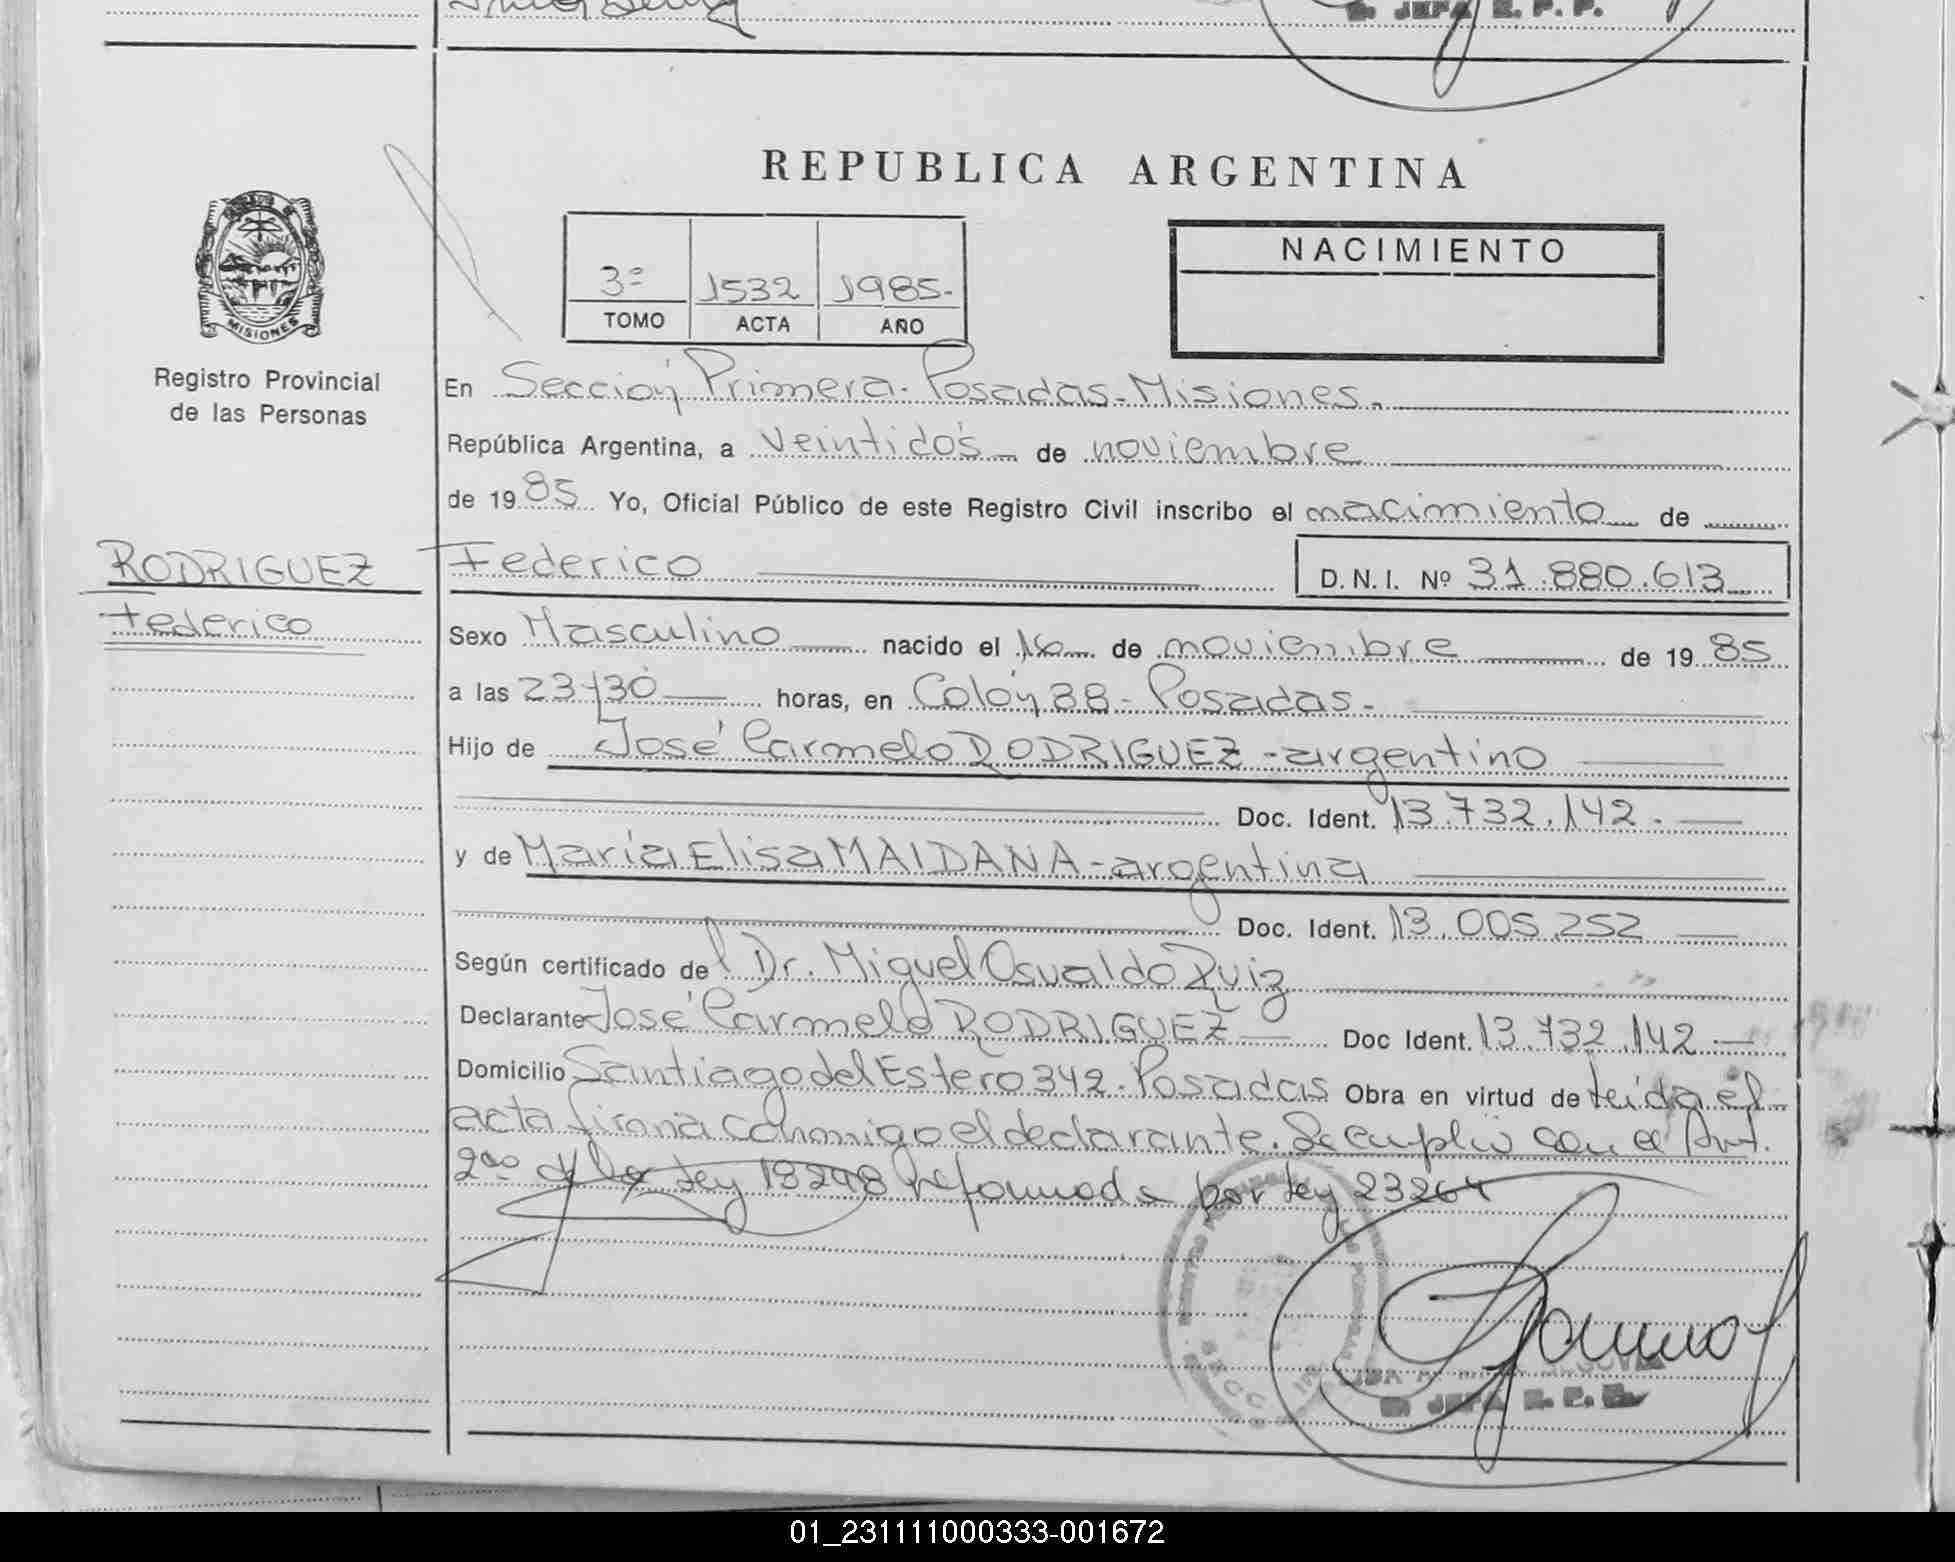 JEFA E. P. P.
REPUBLICA ARGENTINA
3º 1532 1985.-
TOMO ACTA AÑO
NACIMIENTO
MISIONES
Registro Provincial
de las Personas
En Sección Primera. Posadas-Misiones.
República Argentina, a veintidós de noviembre
de 1985 Yo, Oficial Público de este Registro Civil inscribo el nacimiento de
RODRIGUEZ
Federico
Federico D.N.I. Nº 31.880.613
Sexo Masculino nacido el 16 de noviembre de 1985
a las 23y30 horas, en Colón 38 - Posadas.-
Hijo de José Carmelo RODRIGUEZ - argentino
Doc. Ident. 13.732.142.
y de María Elisa MAIDANA - argentina
Doc. Ident. 13.005.252
Según certificado del Dr. Miguel Osvaldo Ruiz
Declarante José Carmelo RODRIGUEZ Doc Ident. 13.732.142
Domicilio Santiago del Estero 342. Posadas Obra en virtud de leída el
acta firma conmigo el declarante. Se cumplió con el Art.
2do de la Ley 18248 reformada por Ley 23264
SEGOVIA
JEFA E. P. P.
01_231111000333-001672